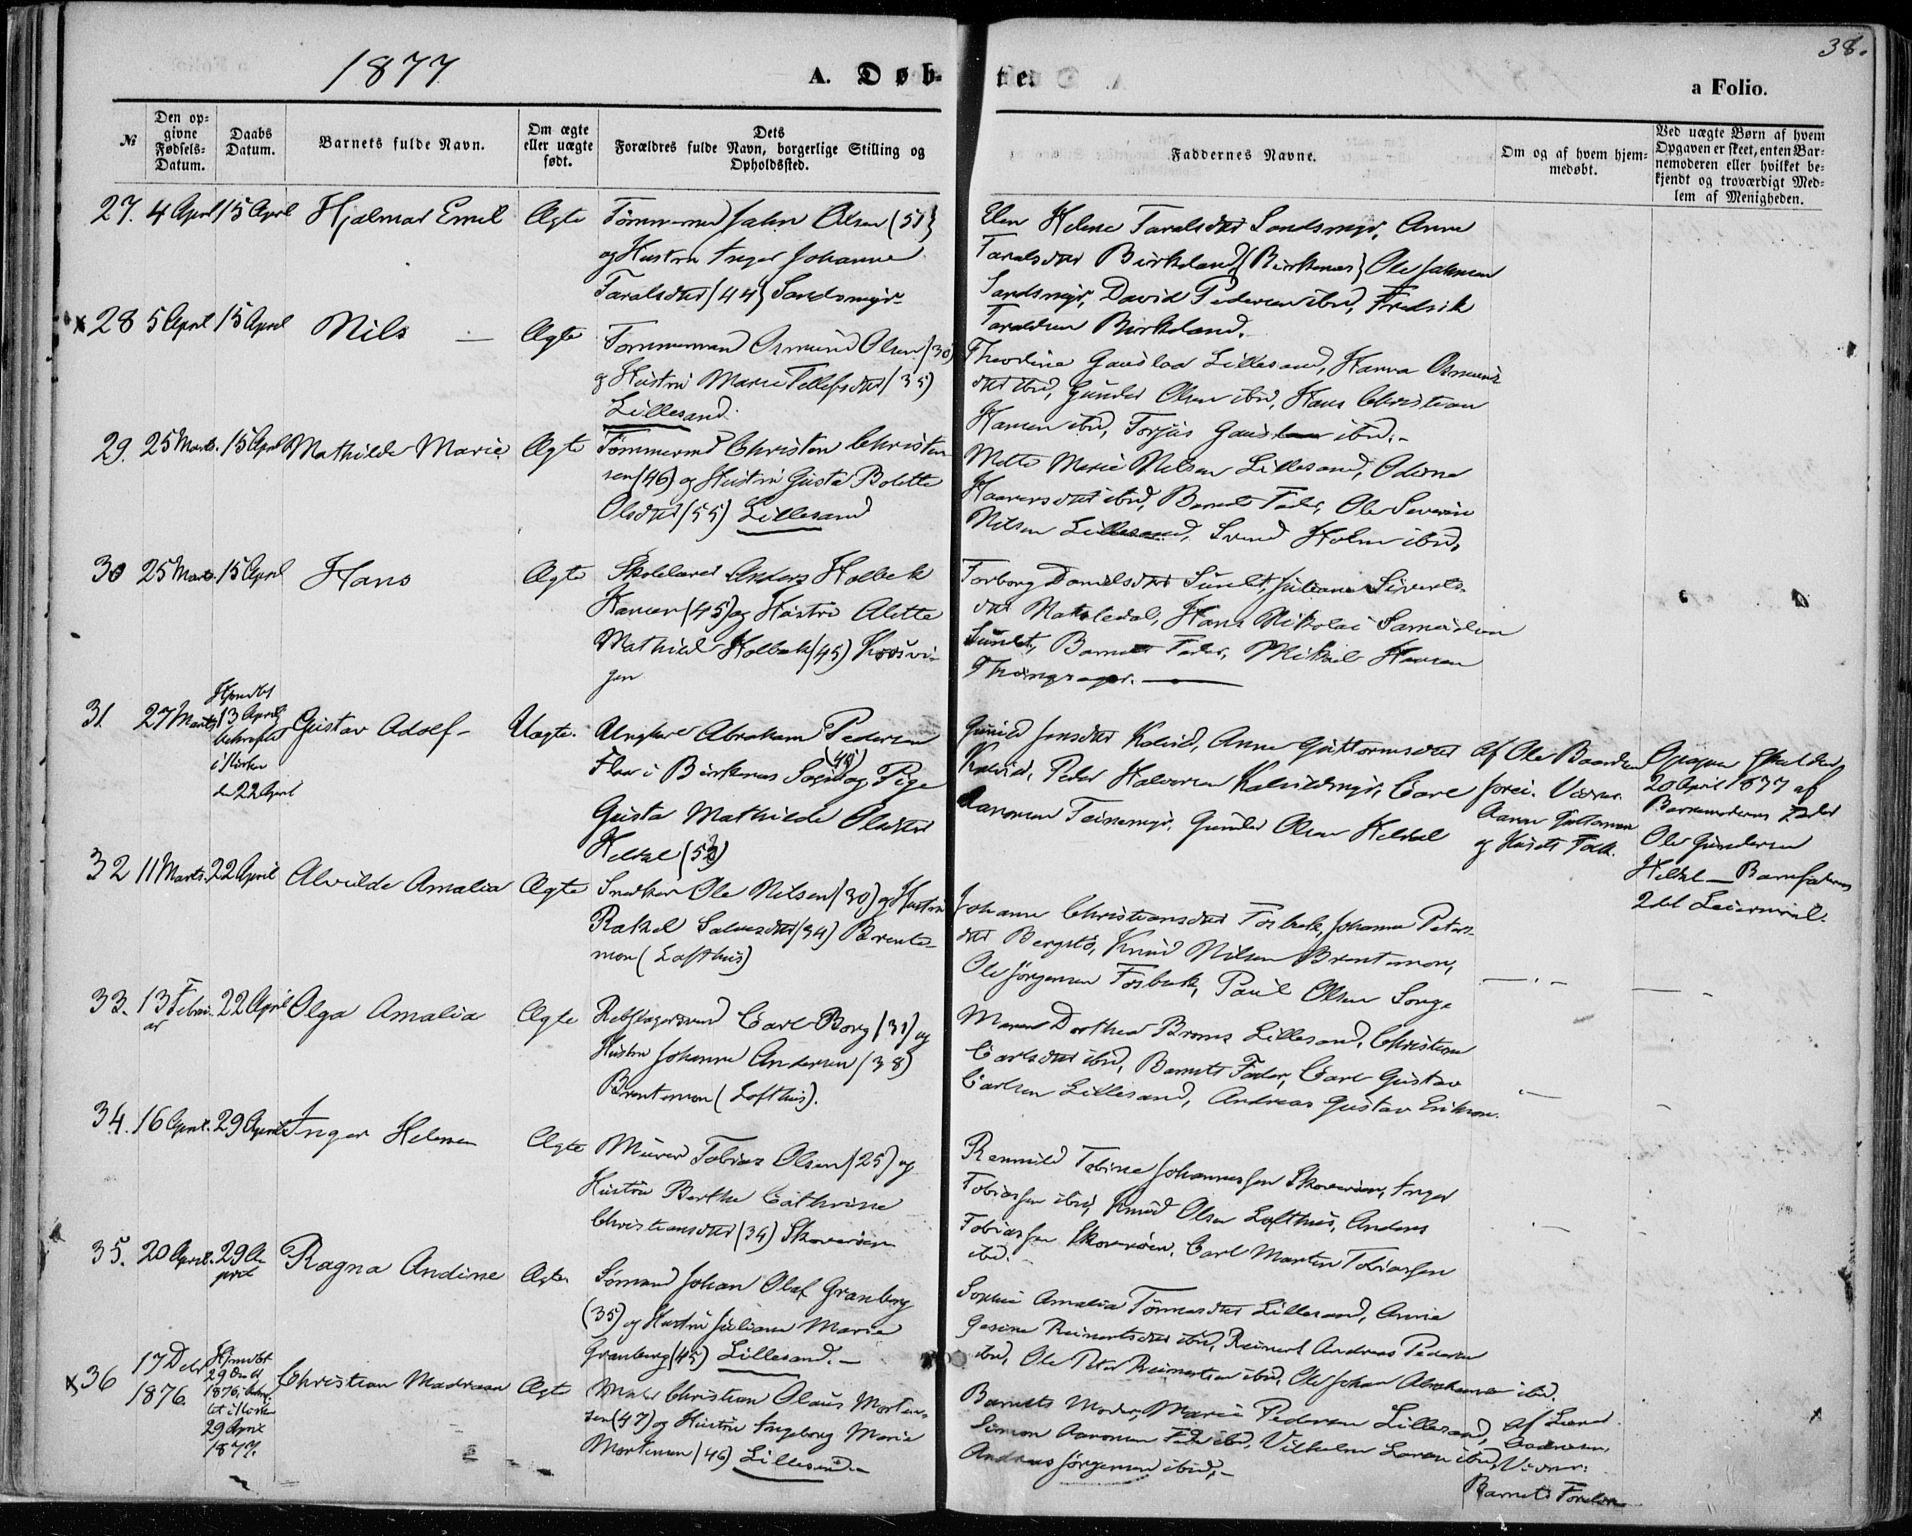 1877.
A. Døb-
te.
38.
a Folio.
№
Den op-
givne
Fødsels-
Datum.
Daabs
Datum.
Barnets fulde Navn.
Om ægte
eller uægte
født.
Dets
Forældres fulde Navn, borgerlige Stilling og
Opholdssted.
Faddernes Navne.
Om og af hvem hjem-
medøbt.
Ved uægte Børn af hvem
Opgaven er skeet, enten Bar-
nemoderen eller hvilket be-
kjendt og troværdigt Med-
lem af Menigheden.
27. 4 April 15 April Hjalmar Emil Ægte
Tømmermd John Olsen (51)
og Hustru Inger Johanne
Taralsdtr (44) Sandsmyr
Elen Helene Taralsdtr Sandsmyr, Anne
Taralsdtr Birkeland (Birkenes) Ole Johnsen
Sandsmyr, David Pedersen ibid, Fredrik
Taraldsen Birkeland.
x 28 5 April 15 April Nils — Ægte
Tømmermand Osmund Olsen (30)
og Hustru Marie Tellefsdtr (35)
Lillesand.
Theodine Gauslaa Lillesand, Hanna Osmunds
dtr ibid, Gunder Olsen ibid, Hans Christian
Hansen ibid, Torjus ibid.-
29. 25 Marts. 15 April Mathilde Marie Ægte
Tømmermd Christen Christen-
sen (46) og Hustru Gusta Bolette
Olsdtr (55) Lillesand
Mette Marie Nilsen Lillesand, Odine
ibid, Barnets Fader, Ole Severin
Nilsen Lillesand, Svend Holm ibid,
30 25 Marts. 15 April Hans Ægte
Skolelærer Anders Holbek
Hansen (45) og Hustru Alette
Mathild Holbek (45) Kossvi-
gen
Torborg Danielsdtr Sundt, Juliane Siverts-
dtr, Hans Nikolai Samuelsen
Sundt, Barnets Fader, Mikael Hansen
31. 27 Marts
Hjmdbt
13 April
bekræftet
i Kirken
den 22 April
Gustav Adolf - Uægte.
Ungkarl Abraham Pedersen
Flaa i Birkenes Sogn (48) og Pige
Gusta Mathilde Olsdtr
Heldal (52)
Gunild Jensdtr Kalvild, Anne Guttormsdtr
Kalvild, Peder Halvorsen Kalvildmyr, Carl
Aaronsen Teinemyr, Gunder Olsen Heldal
Af Ole Baardsen
Vidner.
Guttormsen
og Husets Folk.
Opgaven skeet den
20 April 1877 af
Barnemoderens Fader
Ole Gundersen
Heldal — Barnefaderens
2det Leiermaal.
32 11 Marts. 22 April Alvilde Amalia Ægte
Snedker Ole Nilsen (30) og Hustru
Rakel Salvesdtr (34) Brente-
moen (Lofthus)
Johanne Christiansdtr Fosbæk, Johanne Peters-
dtr Bergstø, Knud Nilsen Brentemoen,
Ole Jørgensen Fosbæk, Paul Olsen Songe
33. 13 Febru-
ar 22 April Olga Amalia Ægte
Rebslagersvend Carl Borg (31) og
Hustru Johanne Andersen (38)
Brentemoen (Lofthus).
Maren Dorthea Lillesand, Christiane
Carlsdtr ibid, Barnets Fader, Carl Gustav
Carlsen Lillesand, Andreas Gustav Erikson.
34. 16 April. 29 April Inger Helene Ægte
Murer Tobias Olsen (25) og
Hustru Berthe Cathrine
Christiansdtr (34) Skoverøen
Rannild Tobine Johannessen Skoverøen, Inger
Tobiassen ibid, Knud Olsen Lofthus, Anders
Tobiassen Skoverøen, Carl Martin Tobiassen
ibid.
35. 20 April. 29 A-
pril Ragna Andine Ægte.
Sømand Johan Olaf Granberg
(35) og Hustru Juliane Marie
Granberg (45) Lillesand.-
Sophie Amalia Tønnesdtr Lillesand, Anne
Gesine Reinertsdtr ibid, Reinert Andreas Pedersen
ibid, Ole Peter Reinertsen ibid, Ole Johan Abrahamsen ibid.
x 36 17 Debr
1876.
Hjmdbt
1876, bekræf-
tet i Kirken
29 April
1877.
Christian Madvaan Ægte
Maler Christian Olaus Morten-
sen (47) og Hustru Ingeborg Marie
Mortensen (46) Lillesand.-
Barnets Moder, Marie Pedersen Lillesand,
Simon Aaronsen ibid, Vilhelm Larsen ibid,
Andreas Jørgensen ibid,-
Af
Vidner:
Barnets Forældre